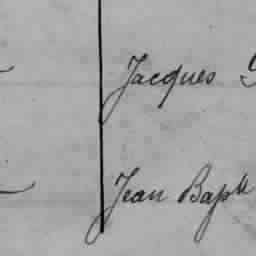 Jacques
Jean Bapte